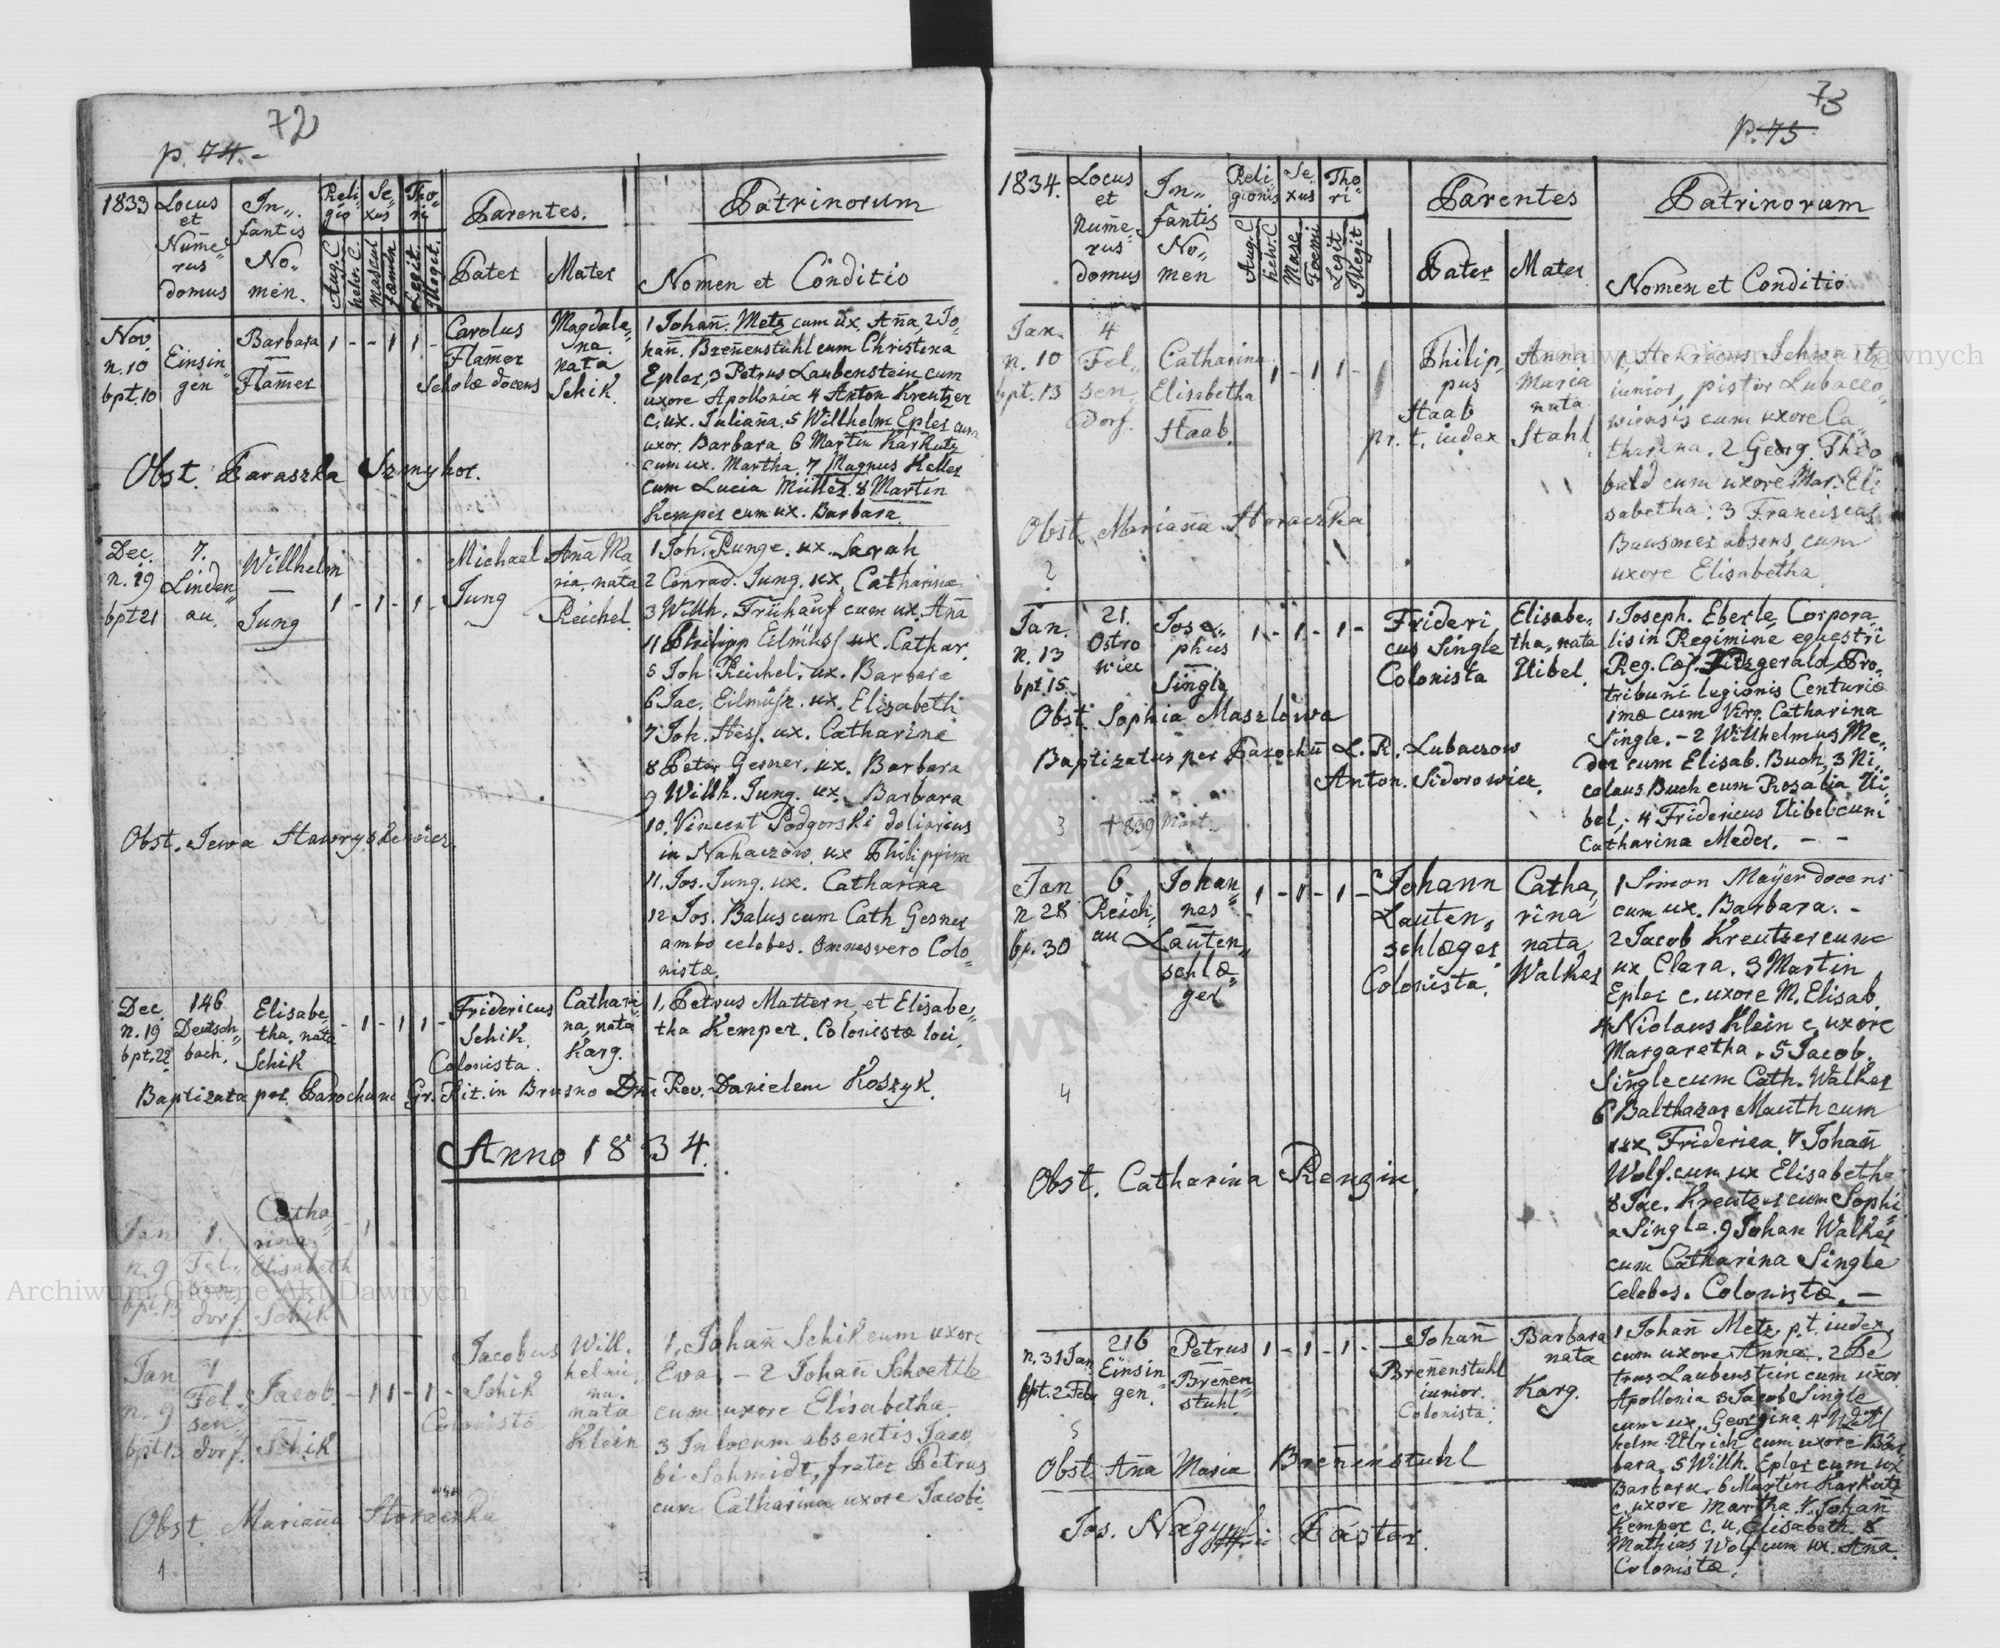 72
p. 74.-
1833 Locus et Nume-rus domus
In-fantis No-men.
Reli-gio Aug. C. helv. C.
Se-xus Mascul Fæmin
Tho-ri Legit. Illegit.
Parentes.
Pater Mater
Patrinorum
Nomen et Conditio
Nov. n. 10 bpt. 10
Einsin gen
Barbara Flam̄er
1 - - 1 1 -
Carolus Flam̄er Scholæ docens
Magdale-na nata Schik.
1 Johan̄. Metz cum ux. An̄a, 2 Jo-
han̄. Bren̄enstuhl cum Christina
Epler, 3 Petrus Laubenstein cum
uxore Apollonia 4 Anton Kreutzer
c. ux. Julian̄a. 5 Willhelm Epler cum
uxor. Barbara. 6 Martin Karkutz
cum ux. Martha. 7 Magnus Keller
cum Lucia Müller. 8 Martin
Kemper cum ux. Barbara.
Obst. Paraszka
Dec. n. 19 bpt 21
7. Linden-au.
Willhelm Jung
1 - 1 - 1 -
Michael Jung
An̄a Ma ria nata Reichel.
1 Joh. Runge. ux. Sarah
2 Conrad. Jung. ux. Catharina
3 Willh. Frühauf cum ux. An̄a
4 Philipp Eilmüs ux. Cathar.
5 Joh Reichel. ux. Barbara
6 Jac. Eilmüs. ux. Elizabeth
7 Joh. Hes. ux. Catharina
8 Peter Gesner. ux. Barbara
9 Willh. Jung. ux. Barbara
10. Vincent Podgorski doliarius
in Nahaczow. ux Philippina
11. Jos. Jung. ux. Catharina
12 Jos. Balus cum Cath Gesner
ambo celebes. Omnes vero Colo-
nistæ.
Obst. Jewa
Dec. n. 19 bpt. 22
146. Deutsch-bach.
Elisabe-tha, nata Schik
- 1 - 1 1 -
Fridericus Schik. Colonista.
Cathari na, nata Karg.
1, Petrus Mattern, et Elisabe-
tha Kemper. Colonistæ loci.
Baptizata per Parochum Gr. Rit. in Brusno Dn̄. Rev. Danielem Koszyk.
Anno 1834.
Jan n. 9 bpt. 13
1. Fel-sen-dorf.
Catha-rina Elisabeth Schik
Jan n. 9 bpt 13
1 Fel-sen-dorf.
Jacob. Schik
- 1 1 - 1 -
Jacobus Schik Colonista
Will-helmi-na. nata Klein
1, Johan̄ Schik cum uxore
Eva. - 2 Johan̄ Schoettle
cum uxore Elisabetha.
3 In locum absentis Jaco
bi Schmidt, frater Petrus
cum Catharina uxore Jacobi.
Obst. Marian̄a Storaczka
1
73
p. 75
1834. Locus et Nume-rus domus
In-fantis No-men
Reli gionis Aug. C helv. C
Se-xus Masc Foemi
Tho-ri Legit Illegit
Parentes
Pater Mater
Patrinorum
Nomen et Conditio
Jan. n. 10 bpt. 13
4 Fel-sen-dorf.
Catharina Elisabetha Staab.
1 - 1 1 -
Philip-pus Staab pr. t. iudex
Anna Maria nata Stahl.
1, Henricus Schwartz
iunior, pistor Lubaczo-
wiensis cum uxore Ca
tharina. 2 Georg. Theo
bald cum uxore Mar. Eli
sabetha. 3 Franciscus
Bausmer absens, cum
uxore Elisabetha
Obst. Marian̄a Storaczka
2
Jan. n. 13 bpt. 15.
21. Ostro wiec
Jose-phus Single
1 - 1 - 1 -
Frideri cus Single Colonista
Elisabe-tha, nata Uibel.
1. Joseph. Eberle, Corpora-
lis in Regimine equestri
Reg. Cæs. Fitzgerald, Pro-
tribuni legionis Centuriæ
1mæ cum Virg. Catharina
Single. - 2 Willhelmus Me-
der cum Elisab. Buch, 3 Ni-
colaus Buch cum Rosalia Ui-
bel, 4 Fridericus Uibel cum
Catharina Meder. - -
Obst. Sophia Maszlowa
Baptizatus per Parochū L. R. Lubaczow
Anton. Sidorowicz.
3 † 839 Mart.
Jan n 28 bp. 30
6. Reich-au
Johan-nes Lauten-schlæ-ger
1 - 1 - 1 -
Johann Lauten-schlæger. Colonista.
Catha-rina nata Walker
1 Simon Mayer docens
cum ux. Barbara. -
2 Jacob Kreutzer cum
ux. Clara. 3 Martin
Epler c. uxore M. Elisab.
4 Niclaus Klein c. uxore
Margaretha. 5 Jacob.
Single cum Cath. Walker
6 Balthazar Mauth cum
ux Friderica. 7 Johan̄
Wolf. cum ux Elisabetha
8 Jac. Kreutzer cum Sophi-
a Single. 9 Johan Walker
cum Catharina Single
Celebes. Colonistæ. -
4
Obst. Catharina Rengin.
n. 31 Jan. bpt. 2 Febr
216 Einsin gen.
Petrus Bren̄en-stuhl
1 - 1 - 1 - -
Johan̄ Bren̄enstuhl iunior. Colonista.
Barbara nata Karg.
1 Johan̄ Metz. p. t. iudex,
cum uxore Anna. 2 Pe
trus Laubenstein cum uxor
Apollonia 3 Jacob Single
cum ux. Georgina. 4 Will
helm Ulrich cum uxore Bar
bara. 5 Willh. Epler cum ux
Barbara. 6 Martin Karkutz
c. uxore Martha 7. Johan̄
Kemper c. u. Elisabeth. 8
Mathias Wolf cum ux. An̄a
Colonistæ.
5
Obst An̄a Maria Bren̄enstuhl
Jos. Pastor.
Archiwum Główne Akt Dawnych
Archiwum Główne Akt Dawnych